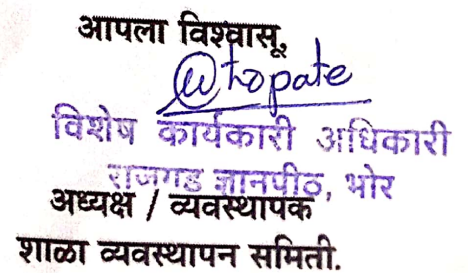 आपला विश्वासू,
विशेष कार्यकारी अधिकारी
राजगड ज्ञानपीठ, भोर
अध्यक्ष / व्यवस्थापक
शाळा व्यवस्थापन समिती.